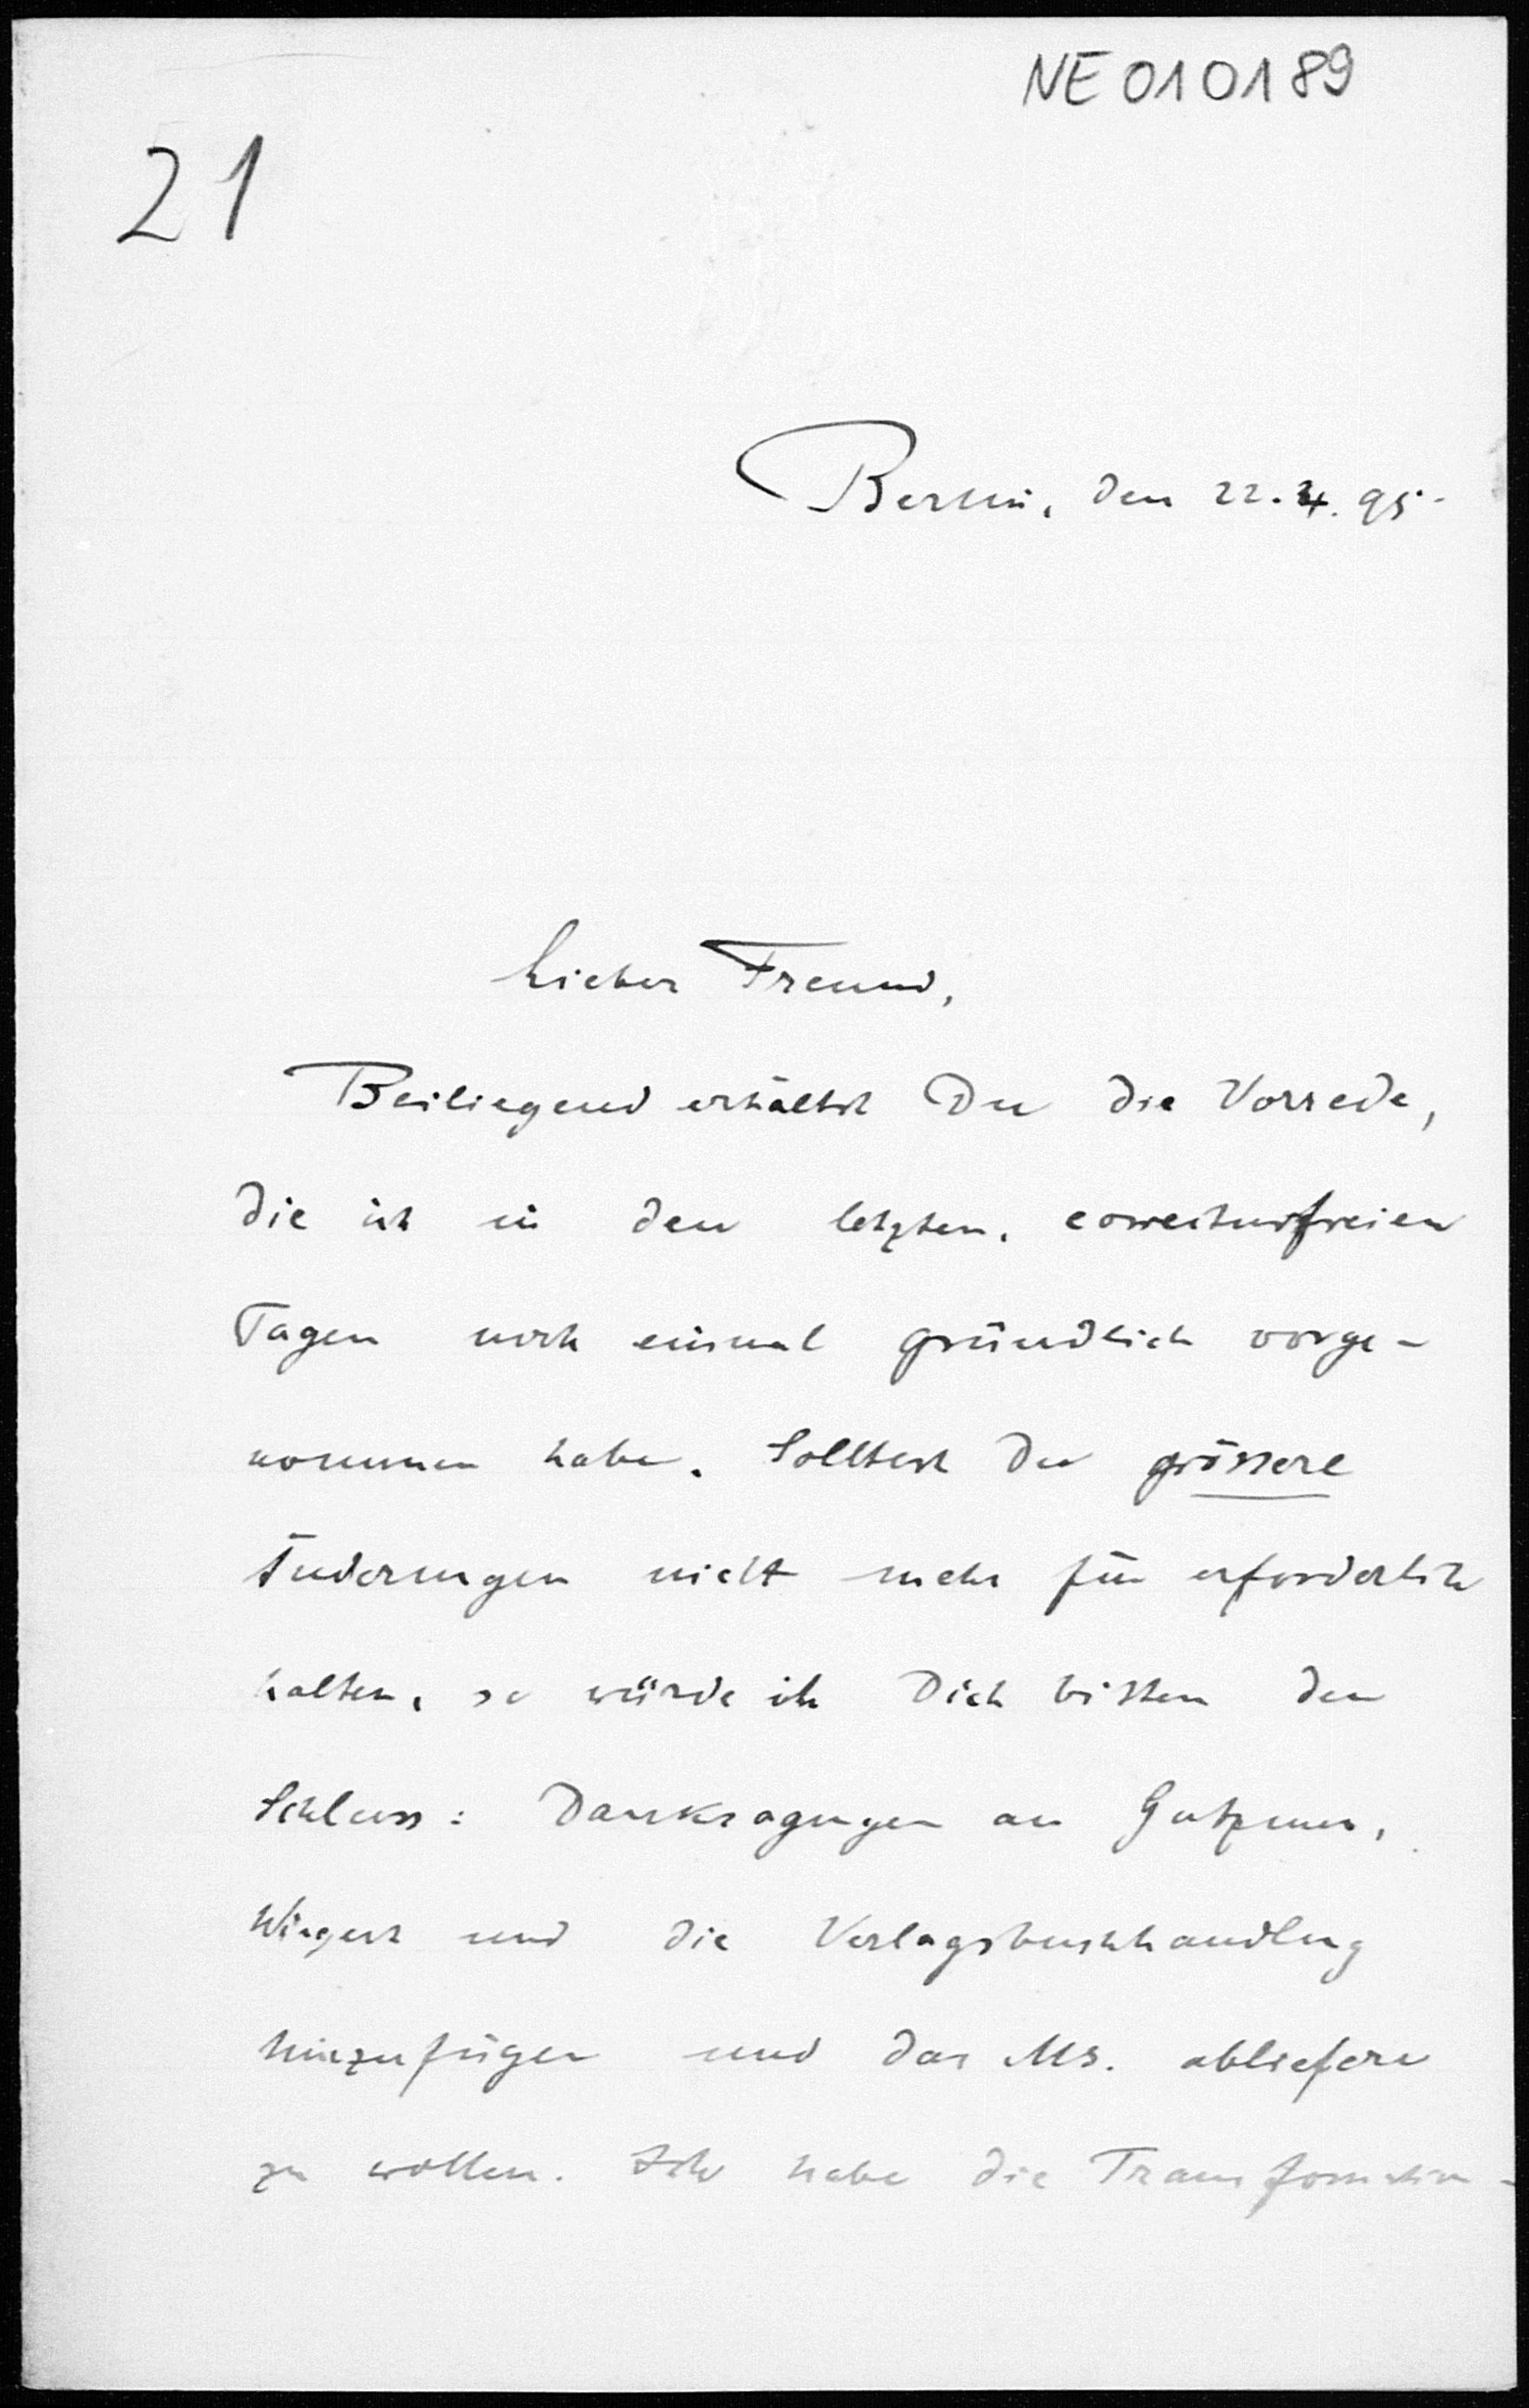 NE 010189
21
Berlin, den 22.4.95.
Lieber Freund,
Beiliegend erhältst Du die Vorrede,
die ich in den letzten, correcturfreien
Tagen noch einmal gründlich vorge-
nommen habe. Solltest Du grössere
Änderungen nicht mehr für erforderlich
halten, so würde ich Dich bitten den
Schluss: Danksagungen an Gutzmer,
und die Verlagsbuchhandlung
hinzufügen und das Ms. abliefern
zu wollen. Ich habe die Transformation-